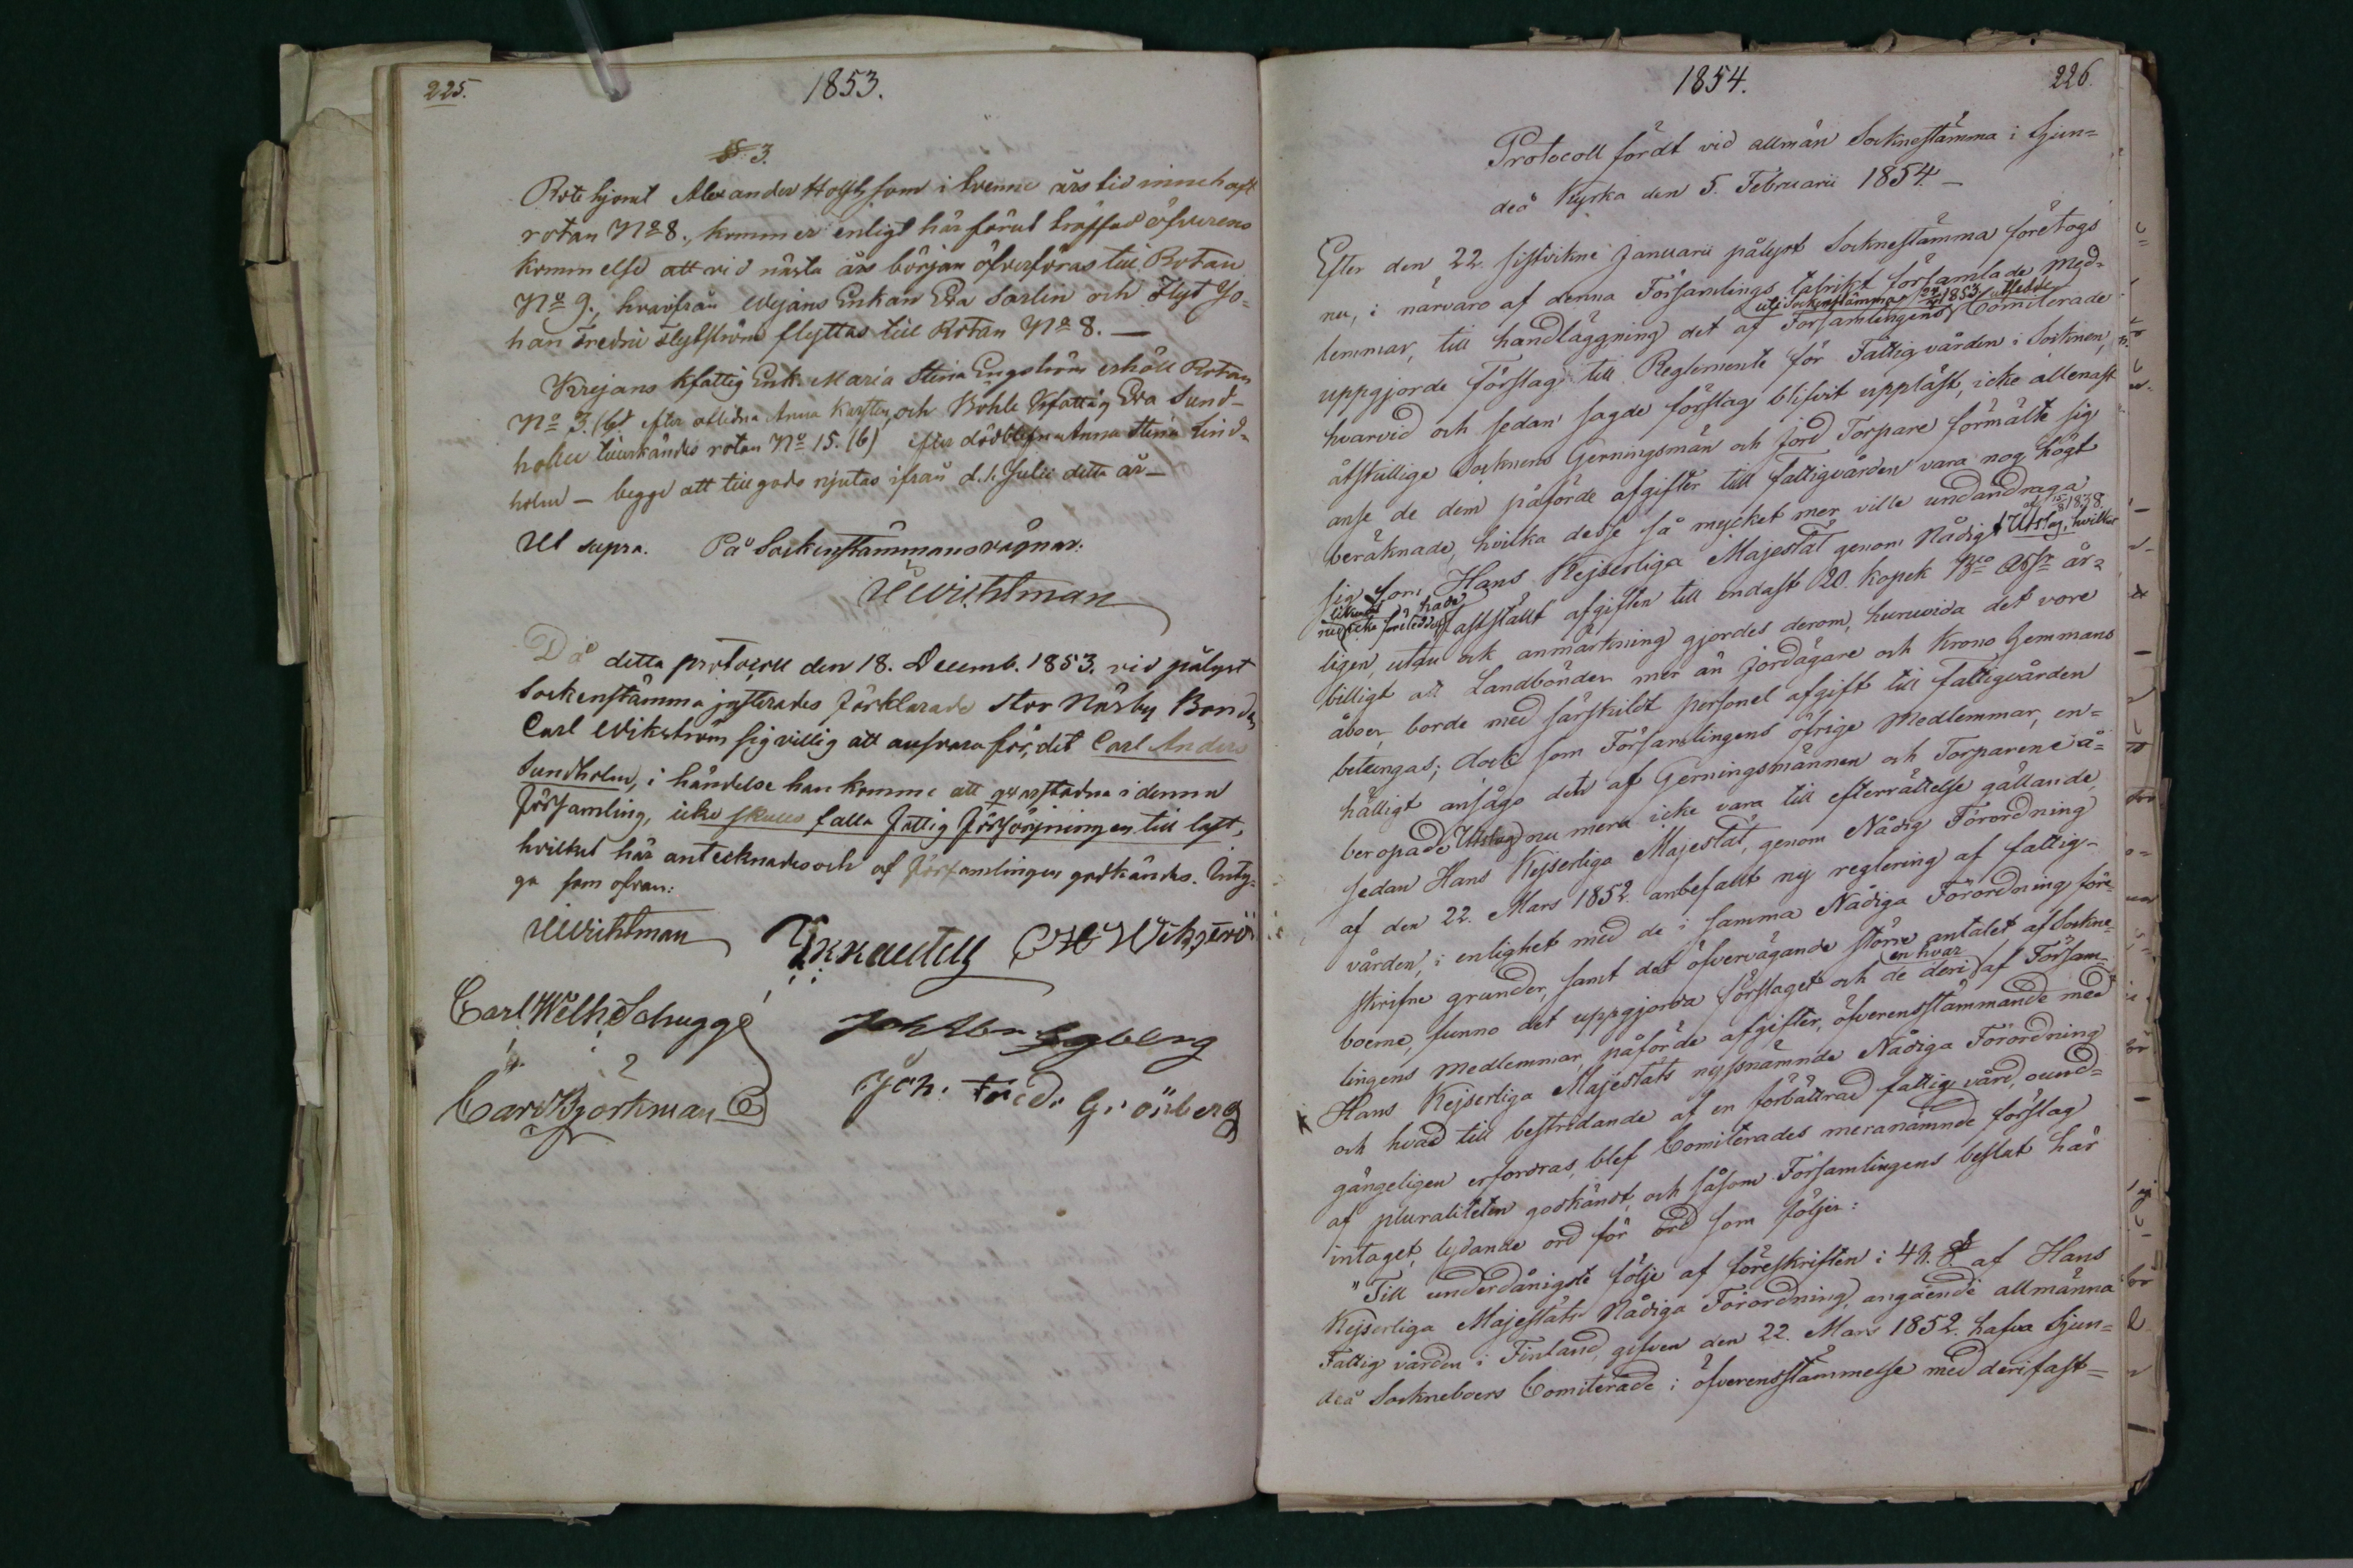 225.
1853.
§ 3.
Rotehjonet Alexander Holst, som i tvenne års tid innehaft
rotan No 8., kommer enligt här förut träffad öfverens
kommelse att vid nästa års början öfverföras till Rotan
No 9., hvarifrån Wejans Enkan Eva Sarlin och Flyt Jo-
han Fredric Flytström flyttas till Rotan No 8. —
Krejans kfattig Enk. Maria Stina Engström erhöll Rotan
No 3. (b) efter aflidna Anna Karsten, och Bohle Kfattig Eva Sund-
holm tillerkändes rotan No 15. (b) efter dödblefna Anna Stina Lind-
holm — begge att tillgodo njutas ifrån d. 1. Julii detta år —
Ut supra. På Sockenstämmans vägnar:
UWichtman
Då detta protocoll den 18. Decemb. 1853. vid pålyst
Sockenstämma justerades förklarade Stor Näsby Bonden
Carl Wikström sig villig att ansvara för, det Carl Anders
Sundholm, i händelse han komme att qvarstadna i denna
församling, icke skulle falla fattig försörjningen till last,
hvilket här antecknades och af församlingen godkändes. Inty-
ga som ofvan:
UWichtman CH Wikström
Carl Wilh Schugge Joh Abr Segberg
Carl Björkman Joh: Fredr Grönberg
1854.
226.
Protocoll fördt vid allmän Socknestämma i Sjun=
deå Kyrka den 5. Februarii 1854. —
Efter den 22. sistvikne Januarii pålyst Socknestämma företogs
nu, i närvaro af denna Församlings talrikt församlade Med-
uti Sockenstämma 1853 utsedde
lemmar, till handläggning det af Församlingens Comiterade
uppgjorde Förslag till Reglemente för Fattigvården i Socknen,
hvarvid och sedan sagde förslag blifvit uppläst, icke allenast
åtskillige Socknens Gerningsmän och Jord Torpare förmälte sig
anse de dem påförde afgifter till fattigvården vara nog högt
beräknade, hvilka desse så mycket mer ville undandraga
af 15/8 1838.
sig som Hans Kejserliga Majestät genom Nådigt Utslag, hvilket
likväl nu icke företeddes, hade
fastställt afgiften till endast 20. kopek Bco Assr år-
ligen, utan ock anmärkning gjordes derom, huruvida det vore
billigt att Landbönder mer än Jordägare och Krono Hemmans
åboer, borde med särskildt personel afgift till fattigvården
betungas; dock som Församlingens öfrige Medlemmar, en=
hälligt ansågo det af Gerningsmännen och Torparene å=
beropade Utslag nu mera icke vara till efterrättelse gällande,
sedan Hans Kejserliga Majestät, genom Nådig Förordning
af den 22. Mars 1852. anbefallt ny reglering af fattig-
vården, i enlighet med de i samma Nådiga Förordning före-
skrifne grunder, samt det öfvervägande större antalet af Sockne-
boerne, funno det uppgjorda förslaget och de deri en hvar af Försam-
lingens Medlemmar, påförde afgifter, öfverensstämmande med
Hans Kejserliga Majestäts nyssnämnde Nådiga Förordning
och hvad till bestridande af en förbättrad fattigvård, ound=
gängeligen erfordras, blef Comiterades meranämnde förslag
af pluraliteten godkändt, och såsom Församlingens beslut här
intaget, lydande ord för ord som följer:
"Till underdånigste följe af föreskriften i 42. § af Hans
Kejserliga Majestäts Nådiga Förordning, angående allmänna
Fattigvården i Finland, gifven den 22. Mars 1852. hafva Sjun=
deå Sockneboers Comiterade i öfverensstämmelse med deri fast=